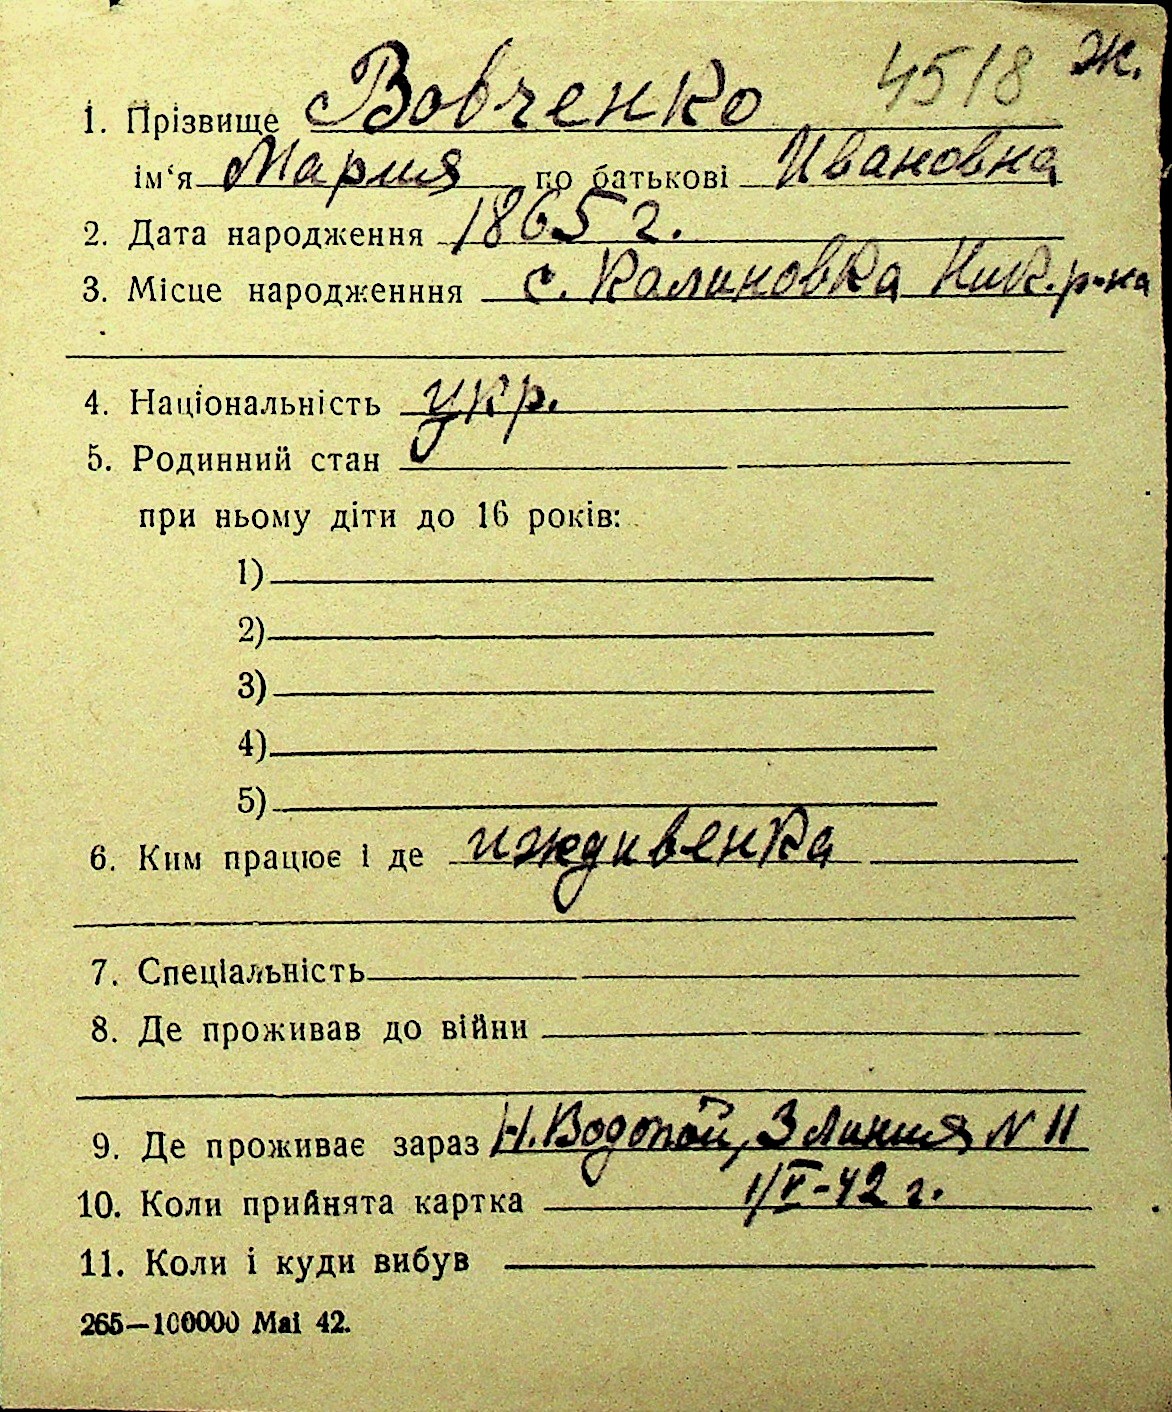 4518 Ж.
1. Прізвище Вовченко
ім‘я Мария по батькові Ивановна
2. Дата народження 1865 г.
3. Місце народженння с. Калиновка Ник. р-на
4. Національність укр.
5. Родинний стан
при ньому діти до 16 років:
1)
2)
3)
4)
5)
6. Ким працює і де иждивенка
7. Спеціальність
8. Де проживав до війни
9. Де проживає зараз Н. Водопой, 3 Линия N 11
10. Коли прийнята картка 1/V-42 г.
11. Коли і куди вибув
265—100000 Mai 42.